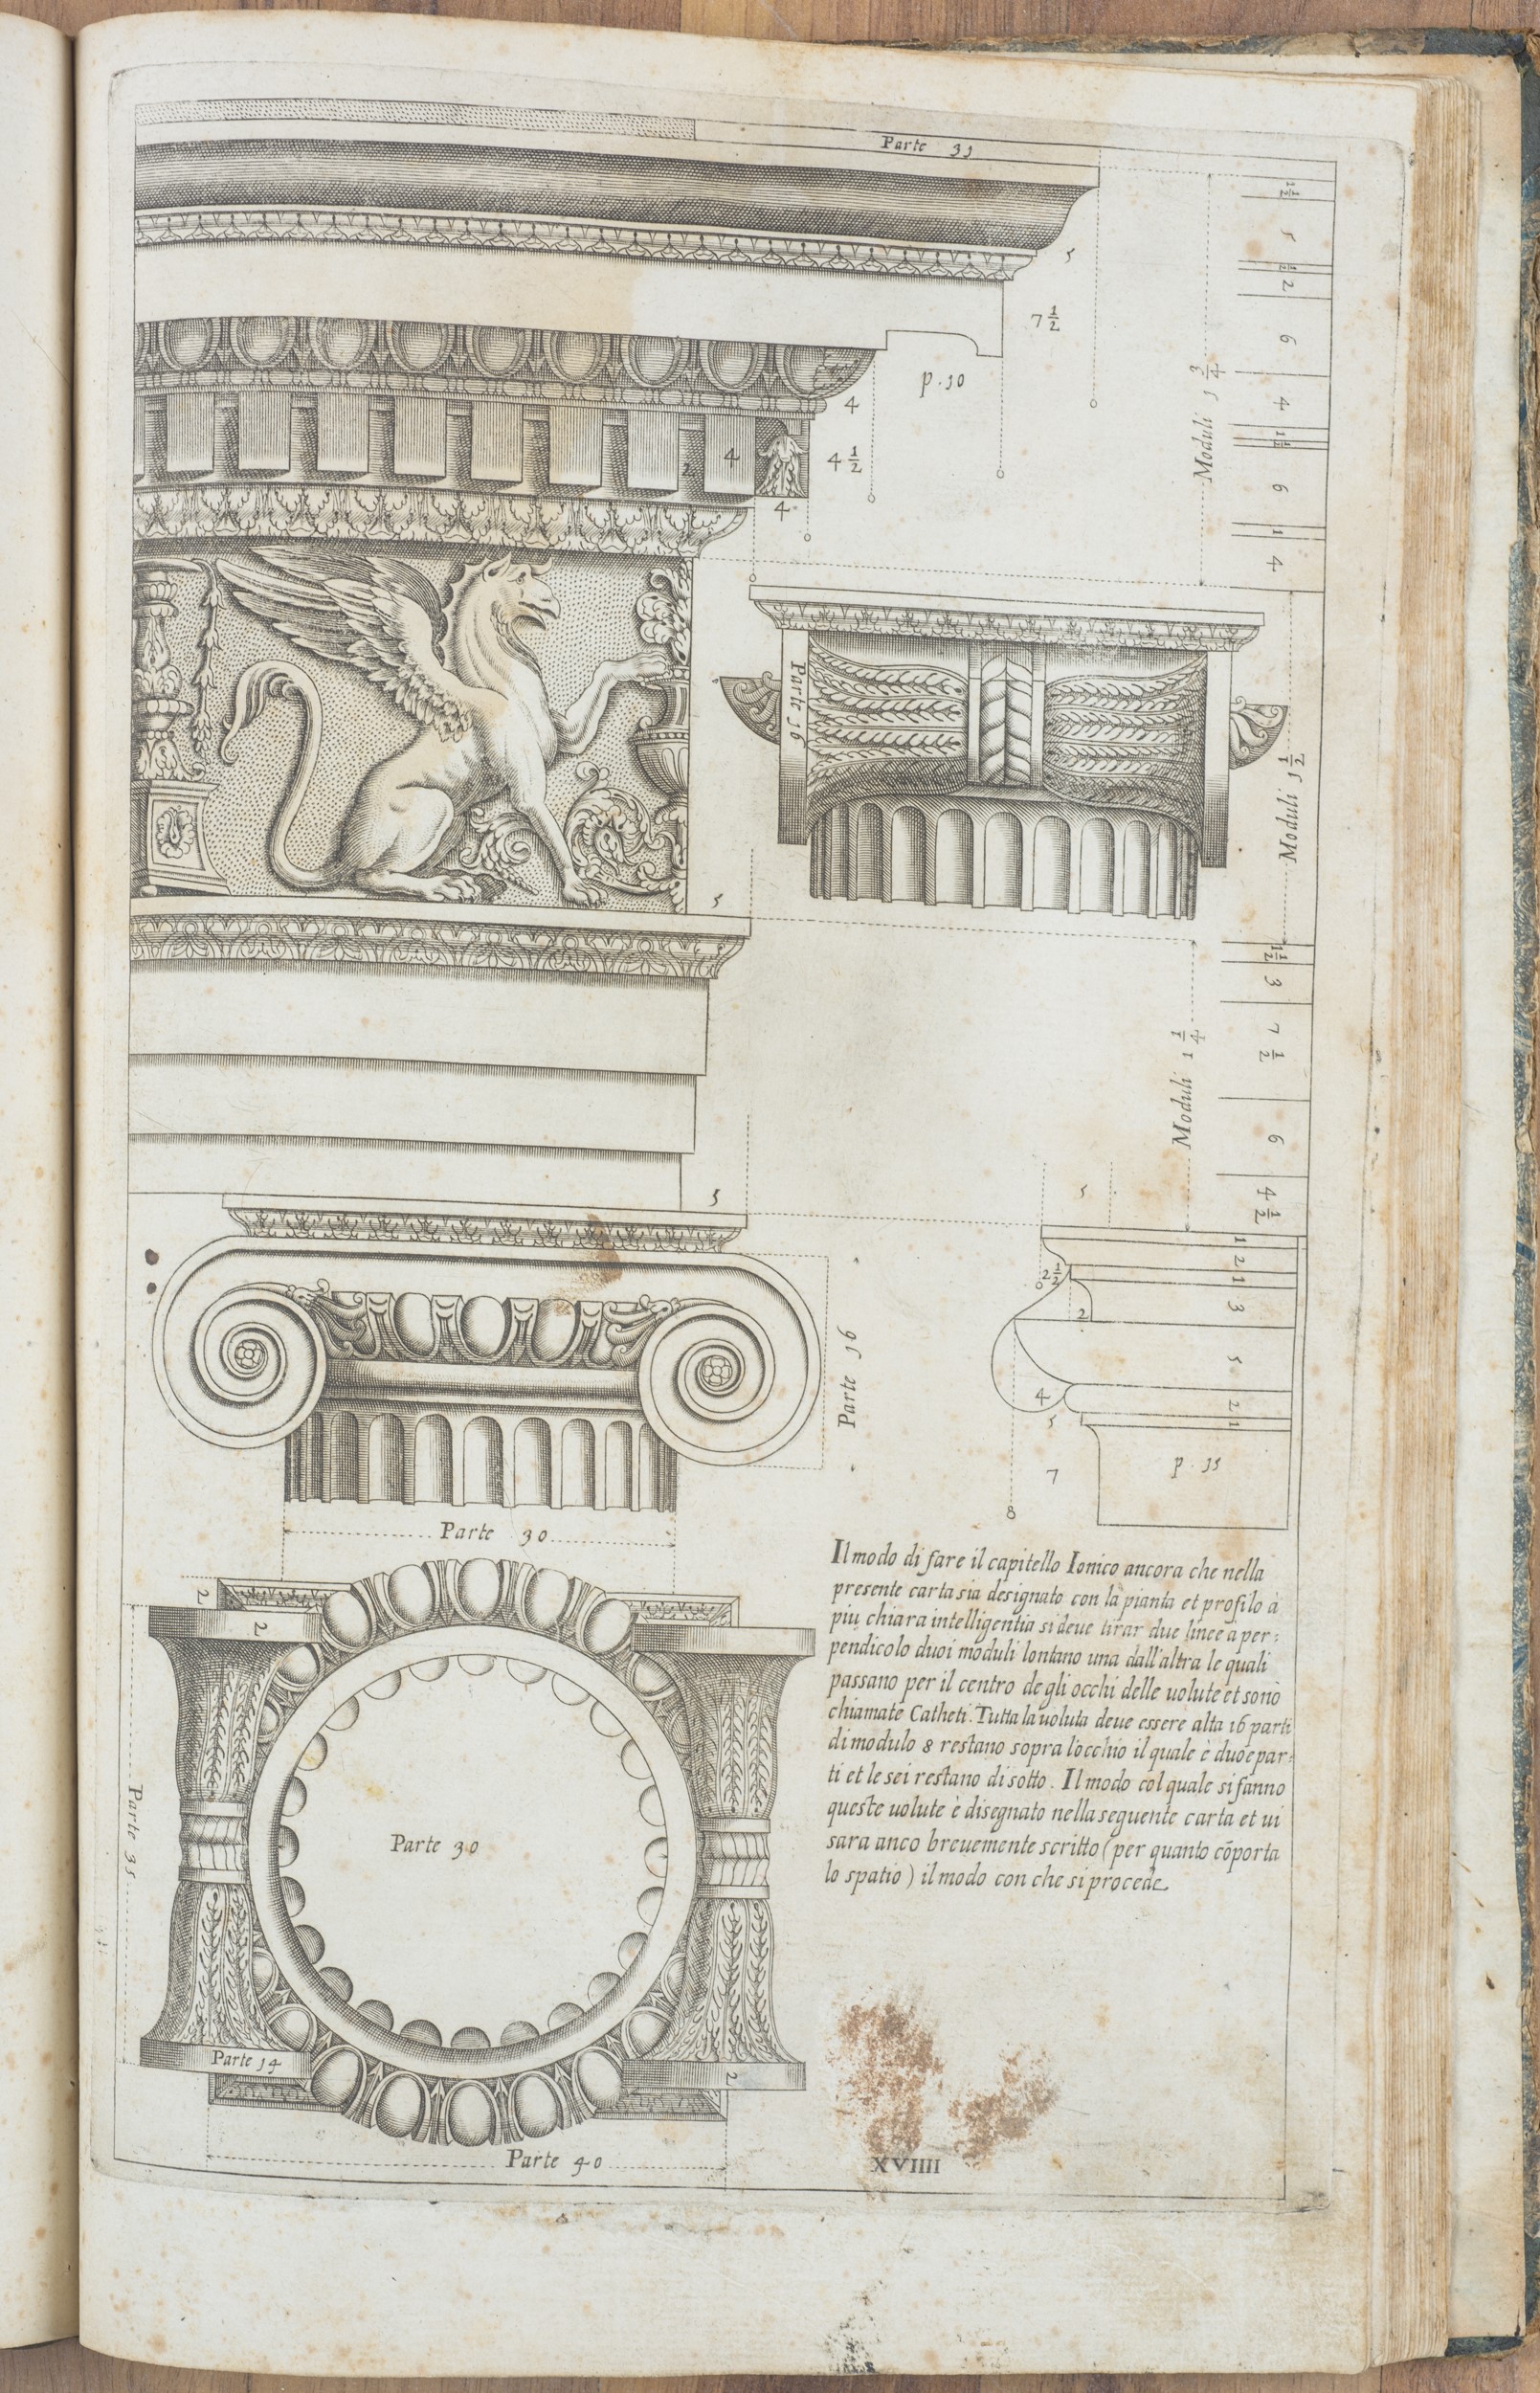 Parte 31
1 1/2
5
1/2
2
5
7 1/2
6
Moduli 1 3/4
p. 10
4
4
1/2
2
4
4 1/2
6
4
1
4
Parte 16
Moduli 1 1/2
5
1 1/2
3
7 1/2
Moduli 1 1/4
6
5
5
4 1/2
1
2
2 1/2
1
3
2
5
Parte 16
4
2
1
5
p. 15
7
8
Parte 30
Il modo di fare il capitello Ionico ancora che nella
presente carta sia designato con la pianta et profilo à
piu chiara intelligentia si deue tirar due linee a per:
pendicolo duoi moduli lontano una dall'altra le quali
passano per il centro degli occhi delle uolute et sono
chiamate Catheti. Tutta la uoluta deue essere alta 16 parti
di modulo 8 restano sopra l'occhio il quale è duoe par:
ti et le sei restano di sotto. Il modo col quale si fanno
queste uolute è disegnato nella seguente carta et ui
sara anco breuemente scritto (per quanto cōporta
lo spatio) il modo con che si procede
2
2
Parte 35
Parte 30
Parte 14
2
Parte 40
XVIIII